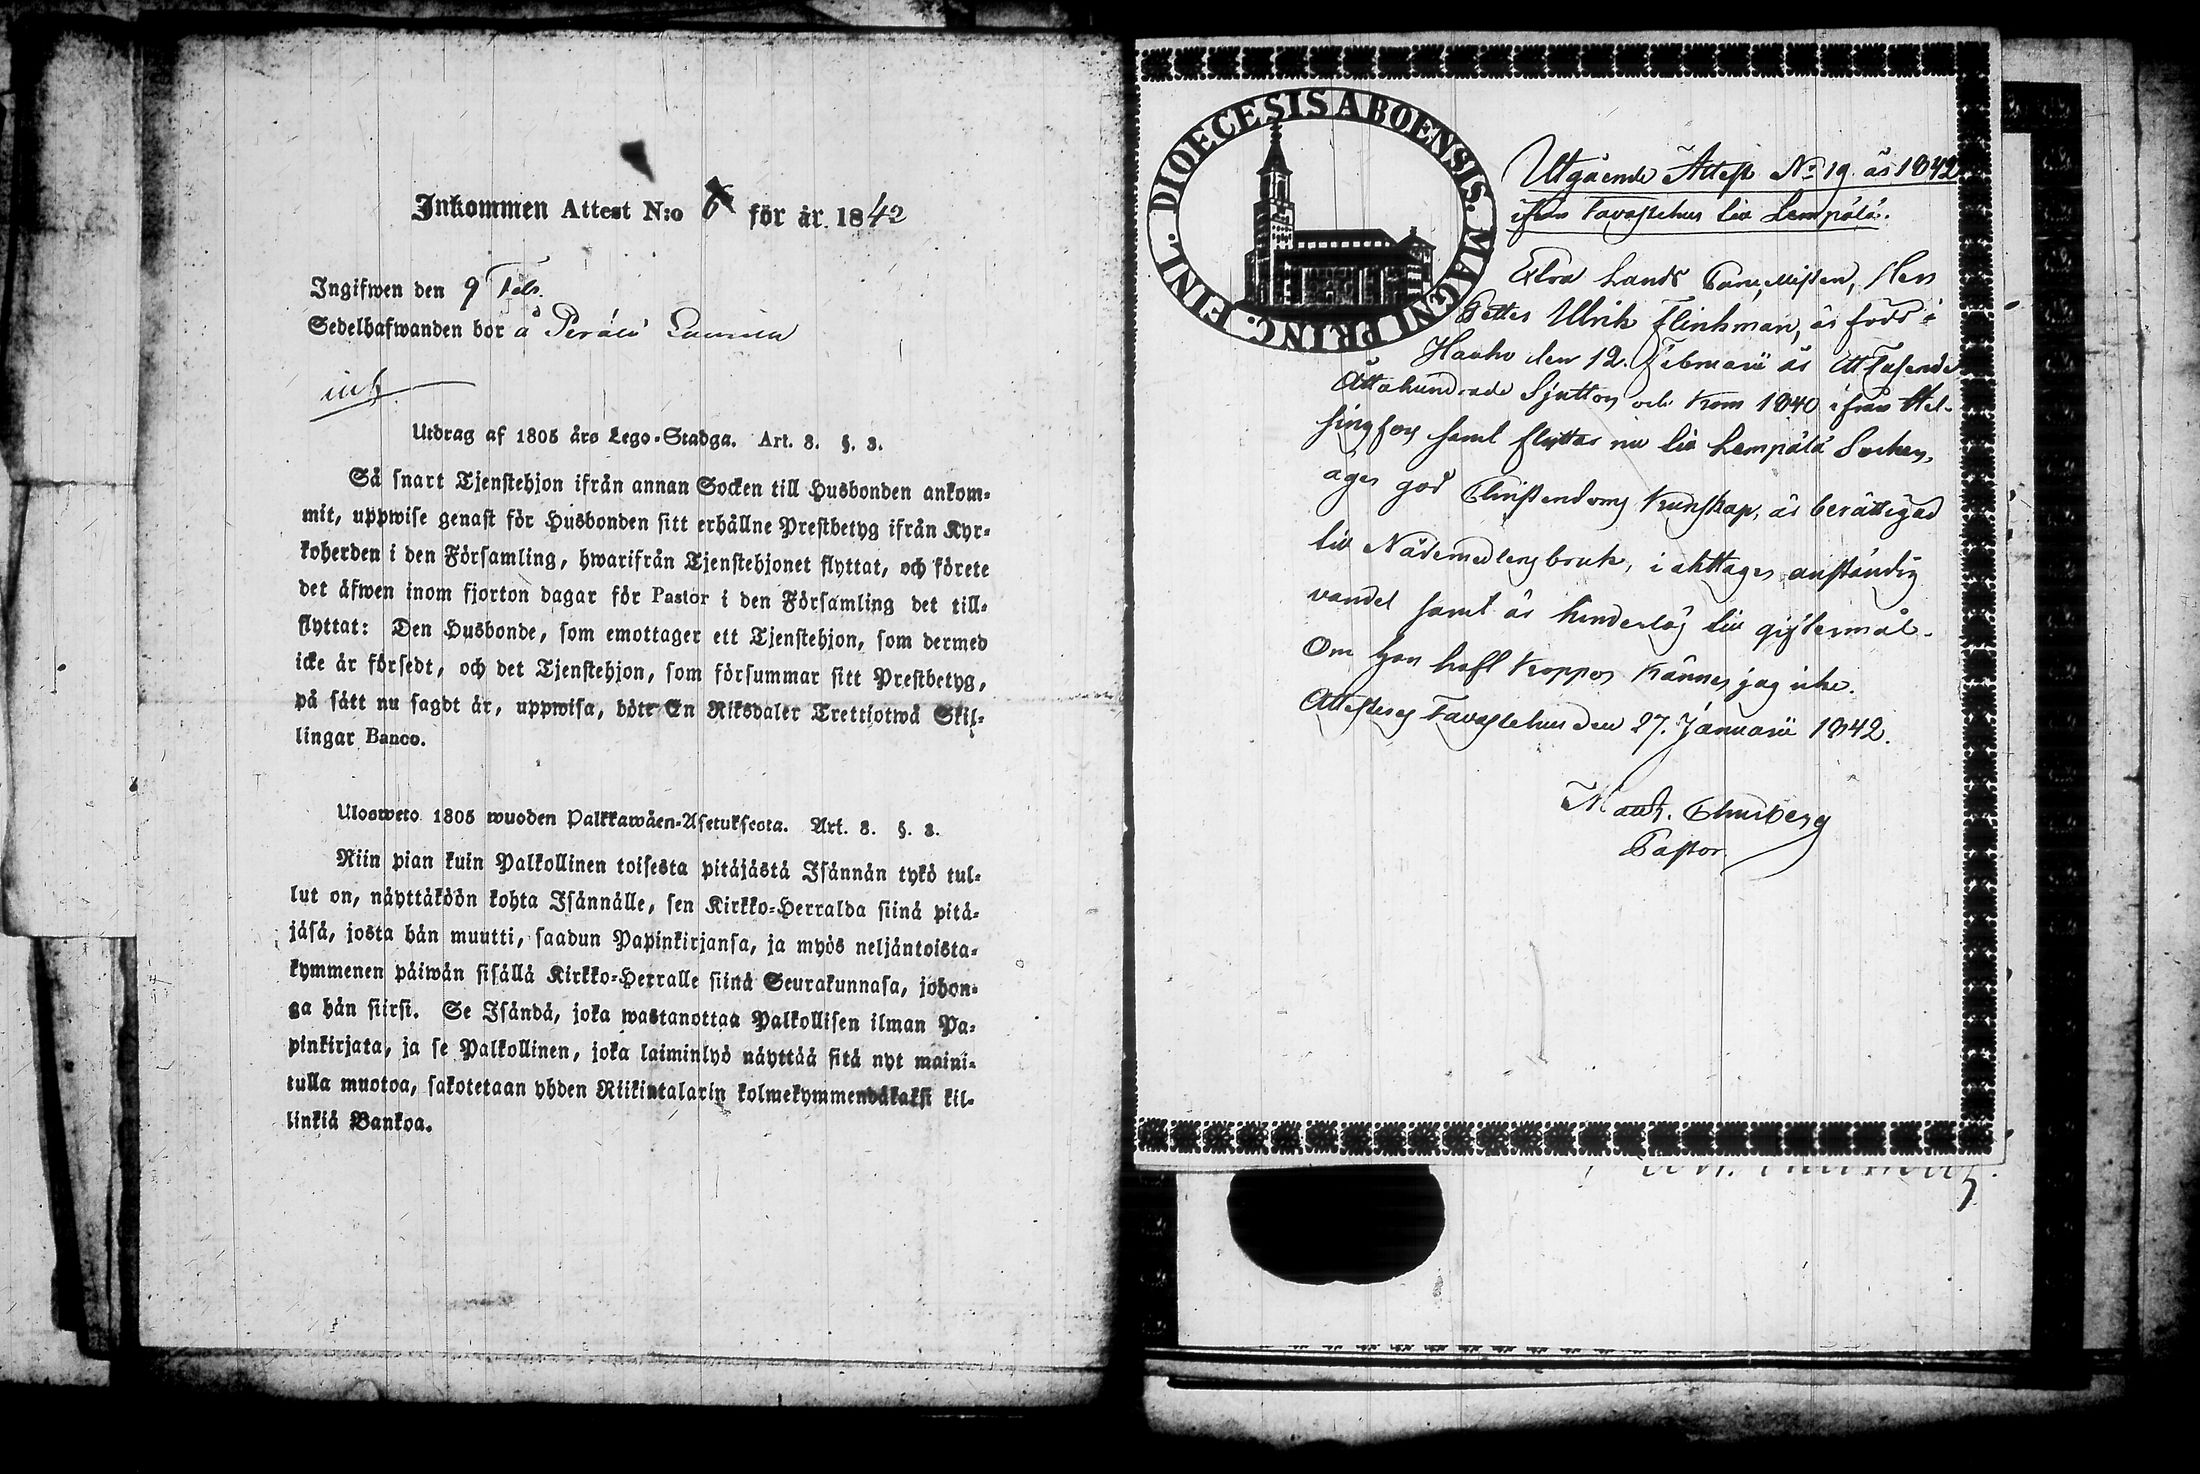 Inkommen Attest N:o 8 för år 1842
Ingifwen den 9 Febr.
Sedelhafwanden bor å Perälä Laurila
inf.
Utdrag af 1805 års Lego-Stadga. Art. 3. §. 3.
Så snart Tjenstehjon ifrån annan Socken till Husbonden ankom-
mit, uppwise genast för Husbonden sitt erhållne Prestbetyg ifrån Kyr-
koherden i den Församling, hwarifrån Tjenstehjonet flyttat, och förete
det äfwen inom fjorton dagar för Pastor i den Församling det till-
flyttat: Den Husbonde, som emottager ett Tjenstehjon, som dermed
icke är försedt, och det Tjenstehjon, som försummar sitt Prestbetyg,
på sätt nu sagdt är, uppwisa, böte En Riksdaler Trettiotwå Skil-
lingar Banco.
Ulosweto 1805 wuoden Palkkawäen-Asetuksesta. Art. 3. §. 3.
Niin pian kuin Palkollinen toisesta pitäjästä Isännän tykö tul-
lut on, näyttäköön kohta Isännälle, sen Kirkko-Herralda siinä pitä-
jäsä, josta hän muutti, saadun Papinkirjansa, ja myös neljäntoista-
kymmenen päiwän sisällä Kirkko-Herralle siinä Seurakunnasa, johon-
ga hän siirsi. Se Isändä, joka wastanottaa Palkollisen ilman Pa-
pinkirjata, ja se Palkollinen, joka laiminlyö näyttää sitä nyt maini-
tulla muotoa, sakotetaan yhden Riikintalarin kolmekymmendäkaksi kil-
linkiä Bankoa.
DIOECESIS ABOENSIS. MAGNI PRINC. FINL.
Utgående Attest No 19 år 1842
ifrån Tavastehus till Lempälä.
Extra Lands Herr
Petter Ulrik Flinkman, är född i
Hauho den 12. Februarii år Ett Tusende
Åttahundrade Sjutton och kom 1840 ifrån Hel-
singfors samt flyttar nu till Lempälä Socken,
äger god Christendoms Kunskap, är berättigad
till Nådemedlens bruk, i akttager anständig
vandel samt är hinderlös till giftermål.
Om han haft Koppor känner jag icke.
Attesteras Tavastehus den 27. Januarii 1842.
Pastor.